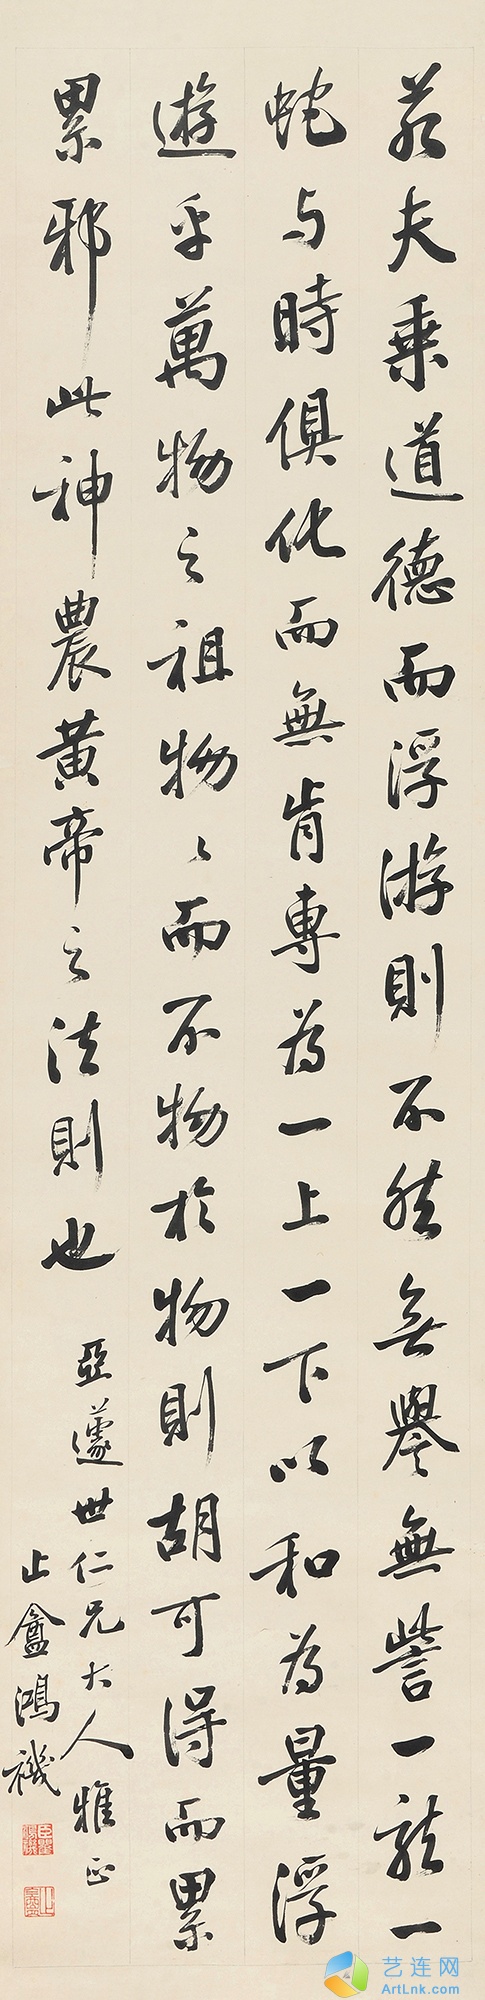 若夫乘道德而浮游則不然無譽無訾一龍一
蛇与時俱化而無肯專為一上一下以和為量浮
遊乎萬物之祖物〻而不物於物則胡可得而累
累邪此神農黃帝之法則也
亞蘧世仁兄大人雅正
止盦鴻禨
艺连网
ArtLnk.com